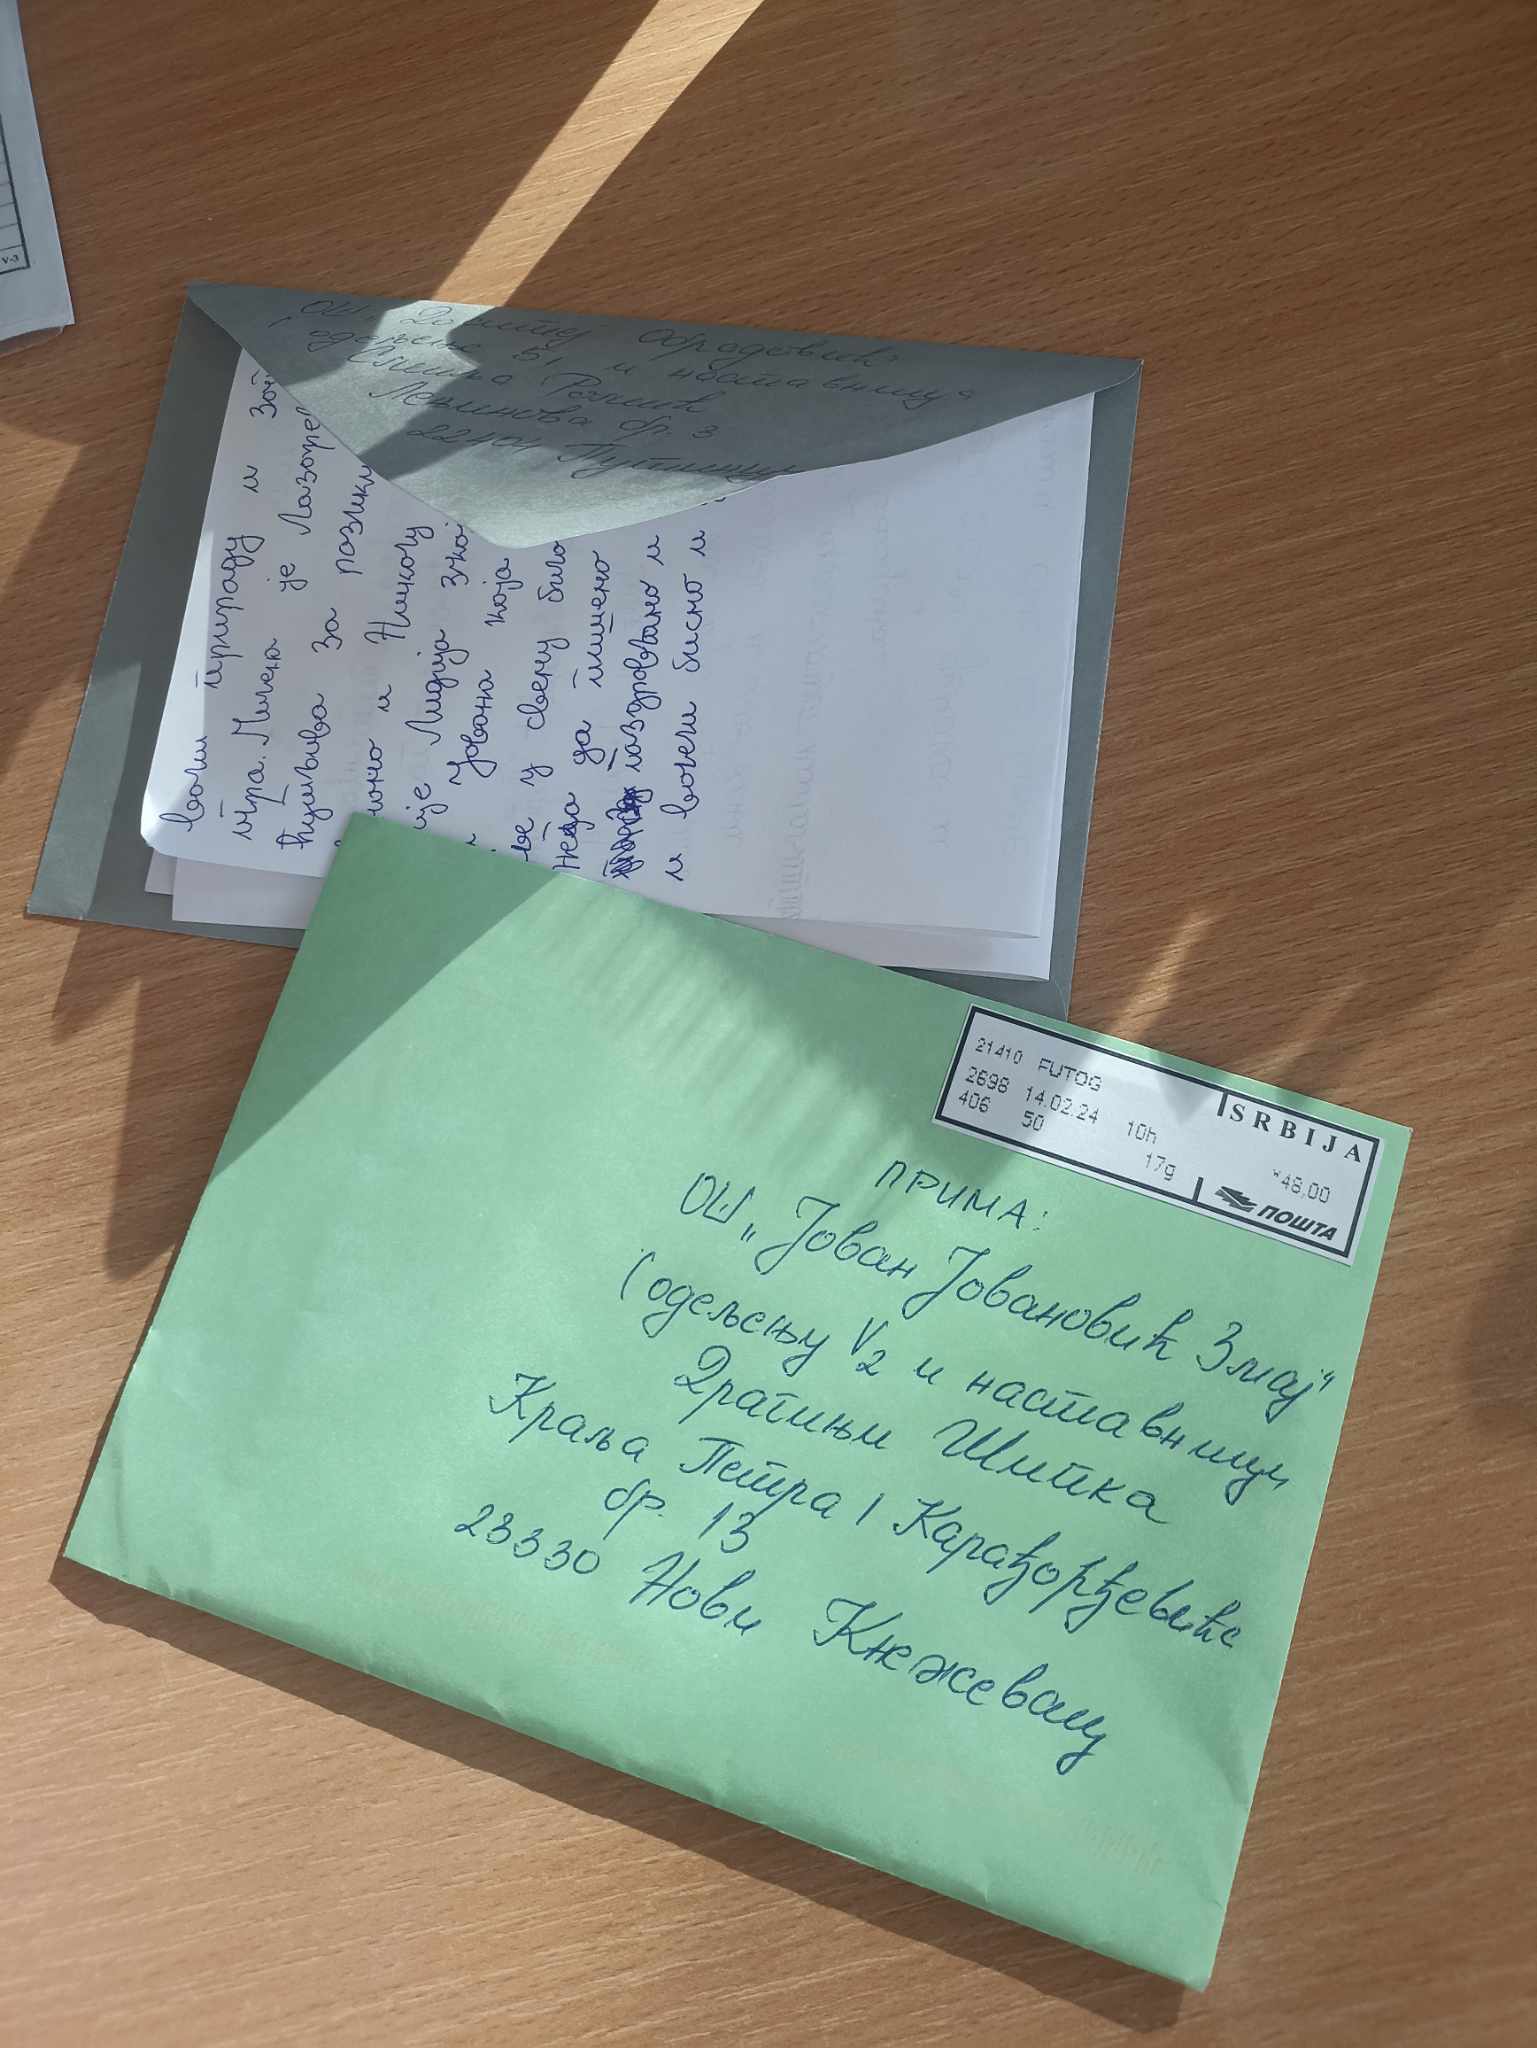 ОШ Доситеј Обрадовић
одељење 5₁ и наставница
Лењинова бр. 3
22404 Путинци
воли природу и
игра. Милена је
за разлик
и Николу
Лидија
Јована која
у свему било
да пишемо
поздравамо и
и волели бисмо и
21410 FUTOG
2698 14.02.24 10h
406 50 17g
SRBIJA
*48,00
ПОШТА
ПРИМА:
ОШ „Јован Јовановић Змај"
(одељењу V₂ и наставници
Драгињи Шипка
Краља Петра I Карађорђевића
бр. 13
23330 Нови Кнежевац